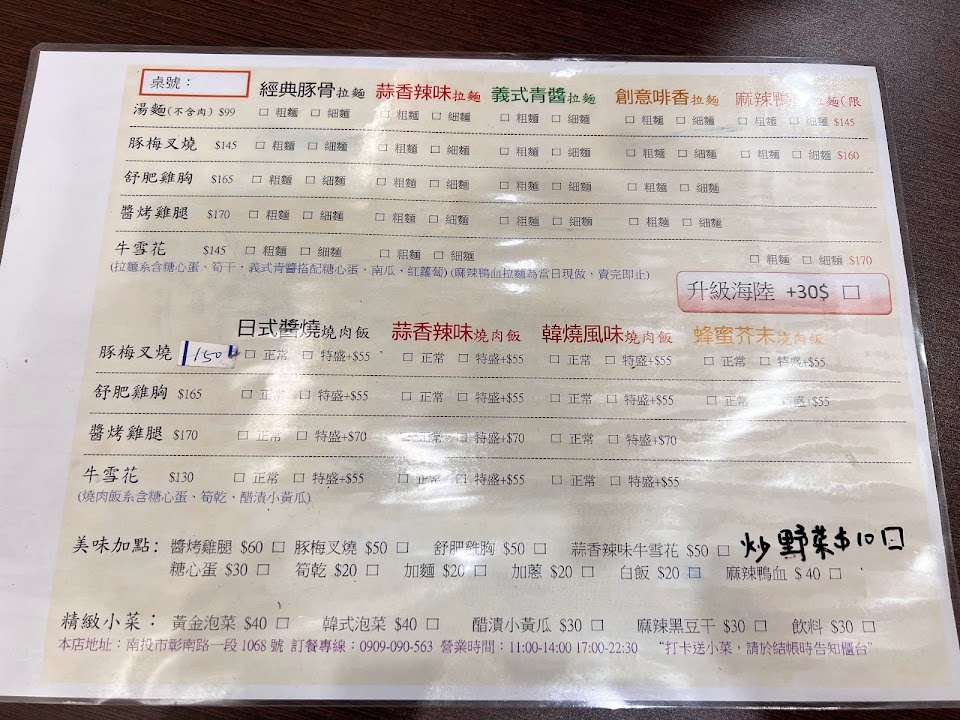 桌號： 經典豚骨拉麵 蒜香辣味拉麵 義式青醬拉麵 創意啡香拉麵 麻辣鴨 拉麵(限
湯麵(不含肉) $99 □ 粗麵 □ 細麵 □ 粗麵 □ 細麵 □ 粗麵 □ 細麵 □ 粗麵 □ 細麵 □ 粗麵 □ 細麵 $145
豚梅叉燒 $145 □ 粗麵 □ 細麵 □ 粗麵 □ 細麵 □ 粗麵 □ 細麵 □ 粗麵 □ 細麵 □ 粗麵 □ 細麵 $160
舒肥雞胸 $165 □ 粗麵 □ 細麵 □ 粗麵 □ 細麵 □ 粗麵 □ 細麵 □ 粗麵 □ 細麵
醬烤雞腿 $170 □ 粗麵 □ 細麵 □ 粗麵 □ 細麵 □ 粗麵 □ 細麵 □ 粗麵 □ 細麵
牛雪花 $145 □ 粗麵 □ 細麵 □ 粗麵 □ 細麵 □ 粗麵 □ 細麵 $170
(拉麵系含糖心蛋、筍干，義式青醬搭配糖心蛋、南瓜、紅蘿蔔) (麻辣鴨血拉麵為當日現做，賣完即止)
升級海陸 +30$ □
日式醬燒燒肉飯 蒜香辣味燒肉飯 韓燒風味燒肉飯 蜂蜜芥末燒肉飯
豚梅叉燒 150 □ 正常 □ 特盛+$55 □ 正常 □ 特盛+$55 □ 正常 □ 特盛+$55 □ 正常 □ 特盛+$55
舒肥雞胸 $165 □ 正常 □ 特盛+$55 □ 正常 □ 特盛+$55 □ 正常 □ 特盛+$55 □ 正常 □ 特盛+$55
醬烤雞腿 $170 □ 正常 □ 特盛+$70 □ 正常 □ 特盛+$70 □ 正常 □ 特盛+$70
牛雪花 $130 □ 正常 □ 特盛+$55 □ 正常 □ 特盛+$55 □ 正常 □ 特盛+$55
(燒肉飯系含糖心蛋、筍乾、醋漬小黃瓜)
美味加點： 醬烤雞腿 $60 □ 豚梅叉燒 $50 □ 舒肥雞胸 $50 □ 蒜香辣味牛雪花 $50 □ 炒野菜$10□
糖心蛋 $30 □ 筍乾 $20 □ 加麵 $20 □ 加蔥 $20 □ 白飯 $20 □ 麻辣鴨血 $ 40 □
精緻小菜： 黃金泡菜 $40 □ 韓式泡菜 $40 □ 醋漬小黃瓜 $30 □ 麻辣黑豆干 $30 □ 飲料 $30 □
本店地址：南投市彰南路一段 1068 號 訂餐專線：0909-090-563 營業時間：11:00-14:00 17:00-22:30 “打卡送小菜，請於結帳時告知櫃台”